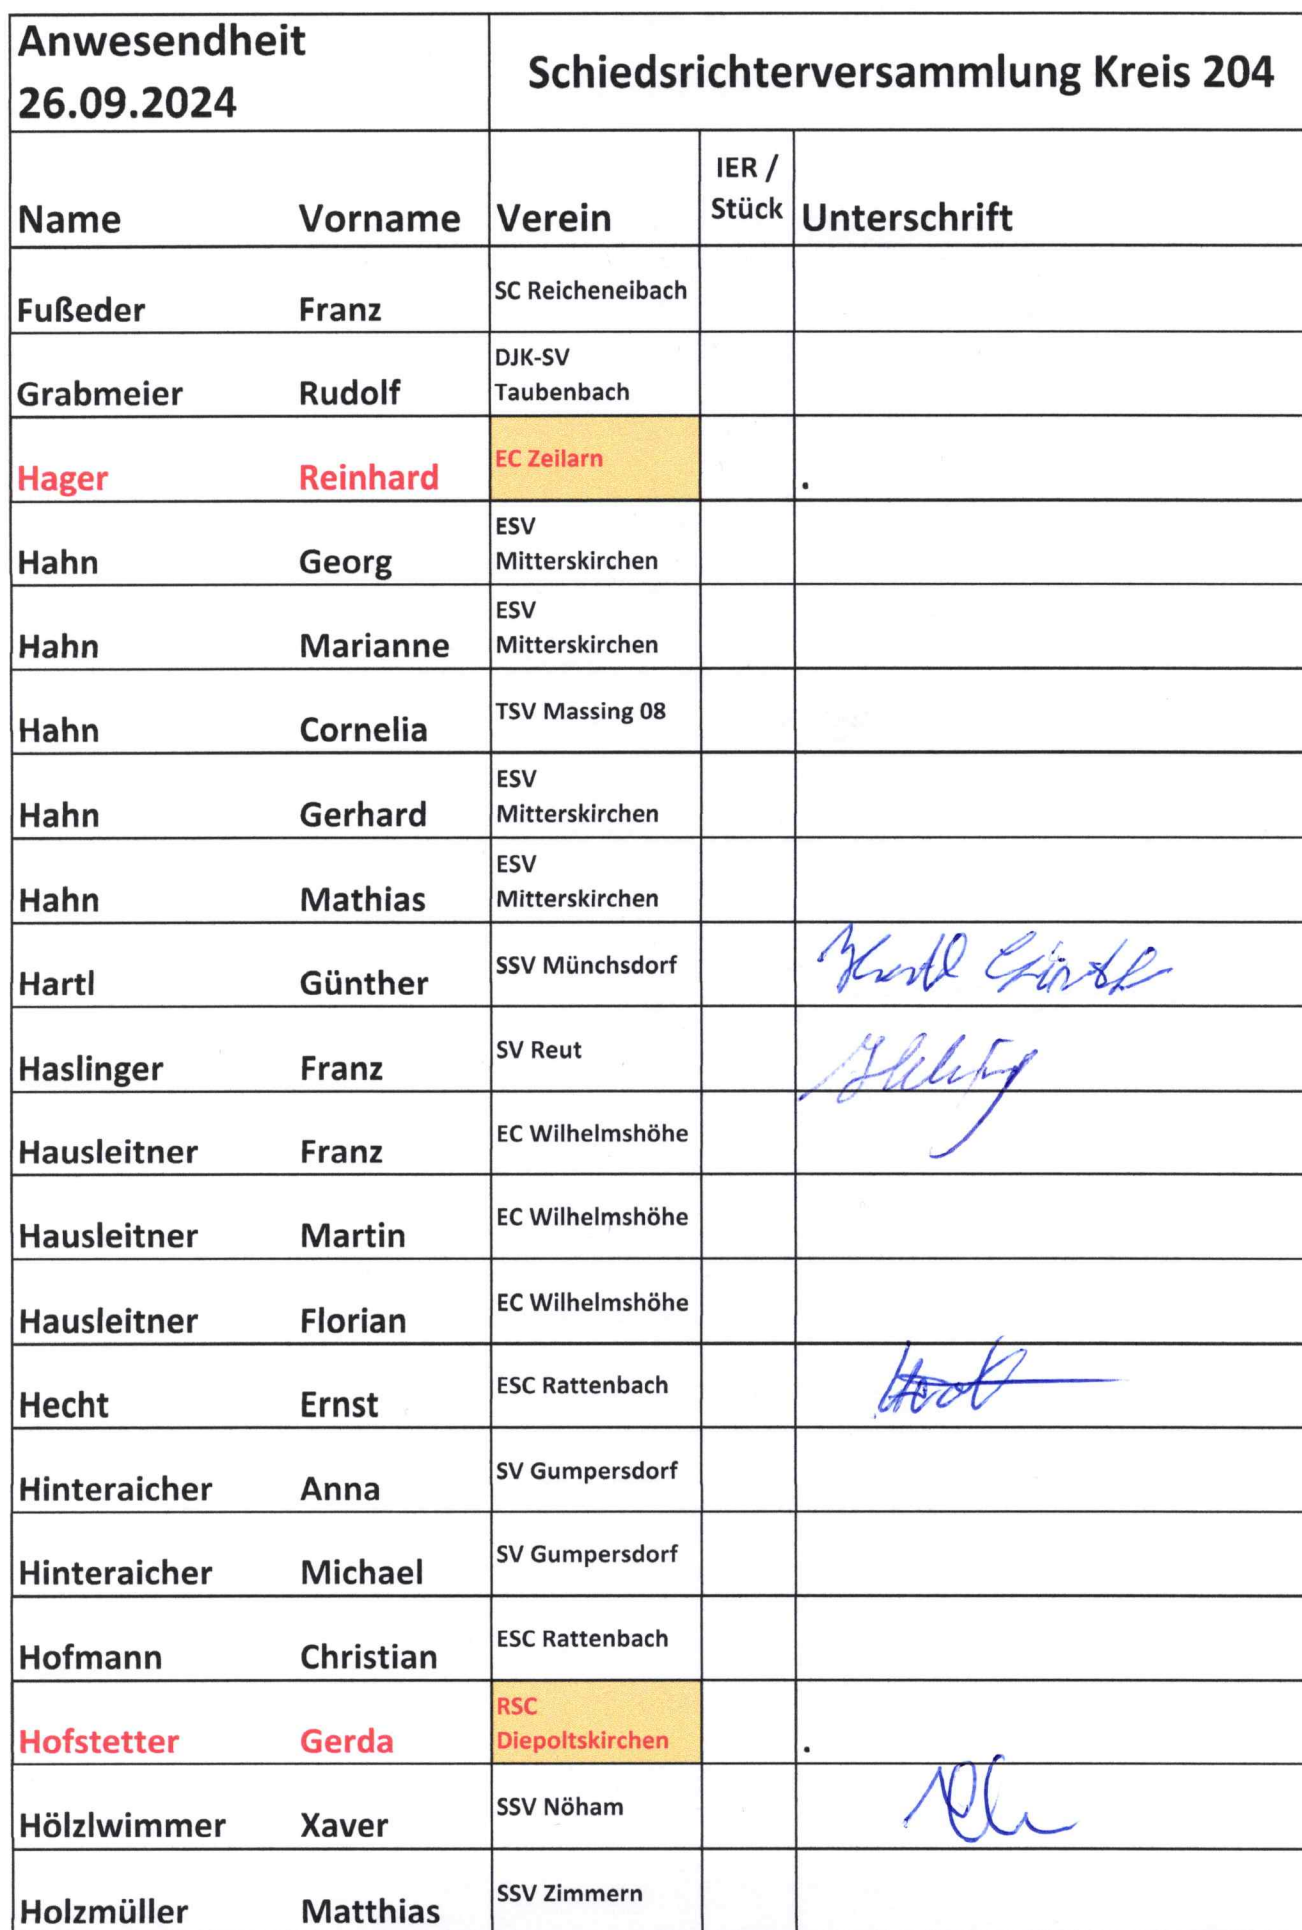 Anwesendheit
26.09.2024
Schiedsrichterversammlung Kreis 204
Name Vorname Verein IER / Stück Unterschrift
Fußeder Franz SC Reicheneibach
Grabmeier Rudolf DJK-SV Taubenbach
Hager Reinhard EC Zeilarn .
Hahn Georg ESV Mitterskirchen
Hahn Marianne ESV Mitterskirchen
Hahn Cornelia TSV Massing 08
Hahn Gerhard ESV Mitterskirchen
Hahn Mathias ESV Mitterskirchen
Hartl Günther SSV Münchsdorf
Haslinger Franz SV Reut
Hausleitner Franz EC Wilhelmshöhe
Hausleitner Martin EC Wilhelmshöhe
Hausleitner Florian EC Wilhelmshöhe
Hecht Ernst ESC Rattenbach
Hinteraicher Anna SV Gumpersdorf
Hinteraicher Michael SV Gumpersdorf
Hofmann Christian ESC Rattenbach
Hofstetter Gerda RSC Diepoltskirchen .
Hölzlwimmer Xaver SSV Nöham
Holzmüller Matthias SSV Zimmern